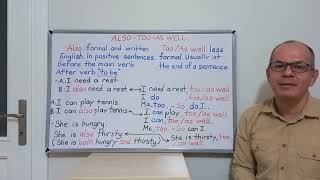 ALSO - TOO - AS WELL
Also formal and written Too/As well: less
English, in positive sentences. formal. Usually at
Before the main verb the end of a sentence
After verb "to be"
-A: I need a rest
B: I also need a rest I need a rest, too / as well
I do, too / as well.
Me, too. - So do I.
A: I can play tennis
B: I can also play tennis I can play tennis, too / as well.
I can, too / as well.
Me, too. - So can I.
- She is hungry.
She is also thirsty She is thirsty, too
(She is both hungry and thirsty) / as well.